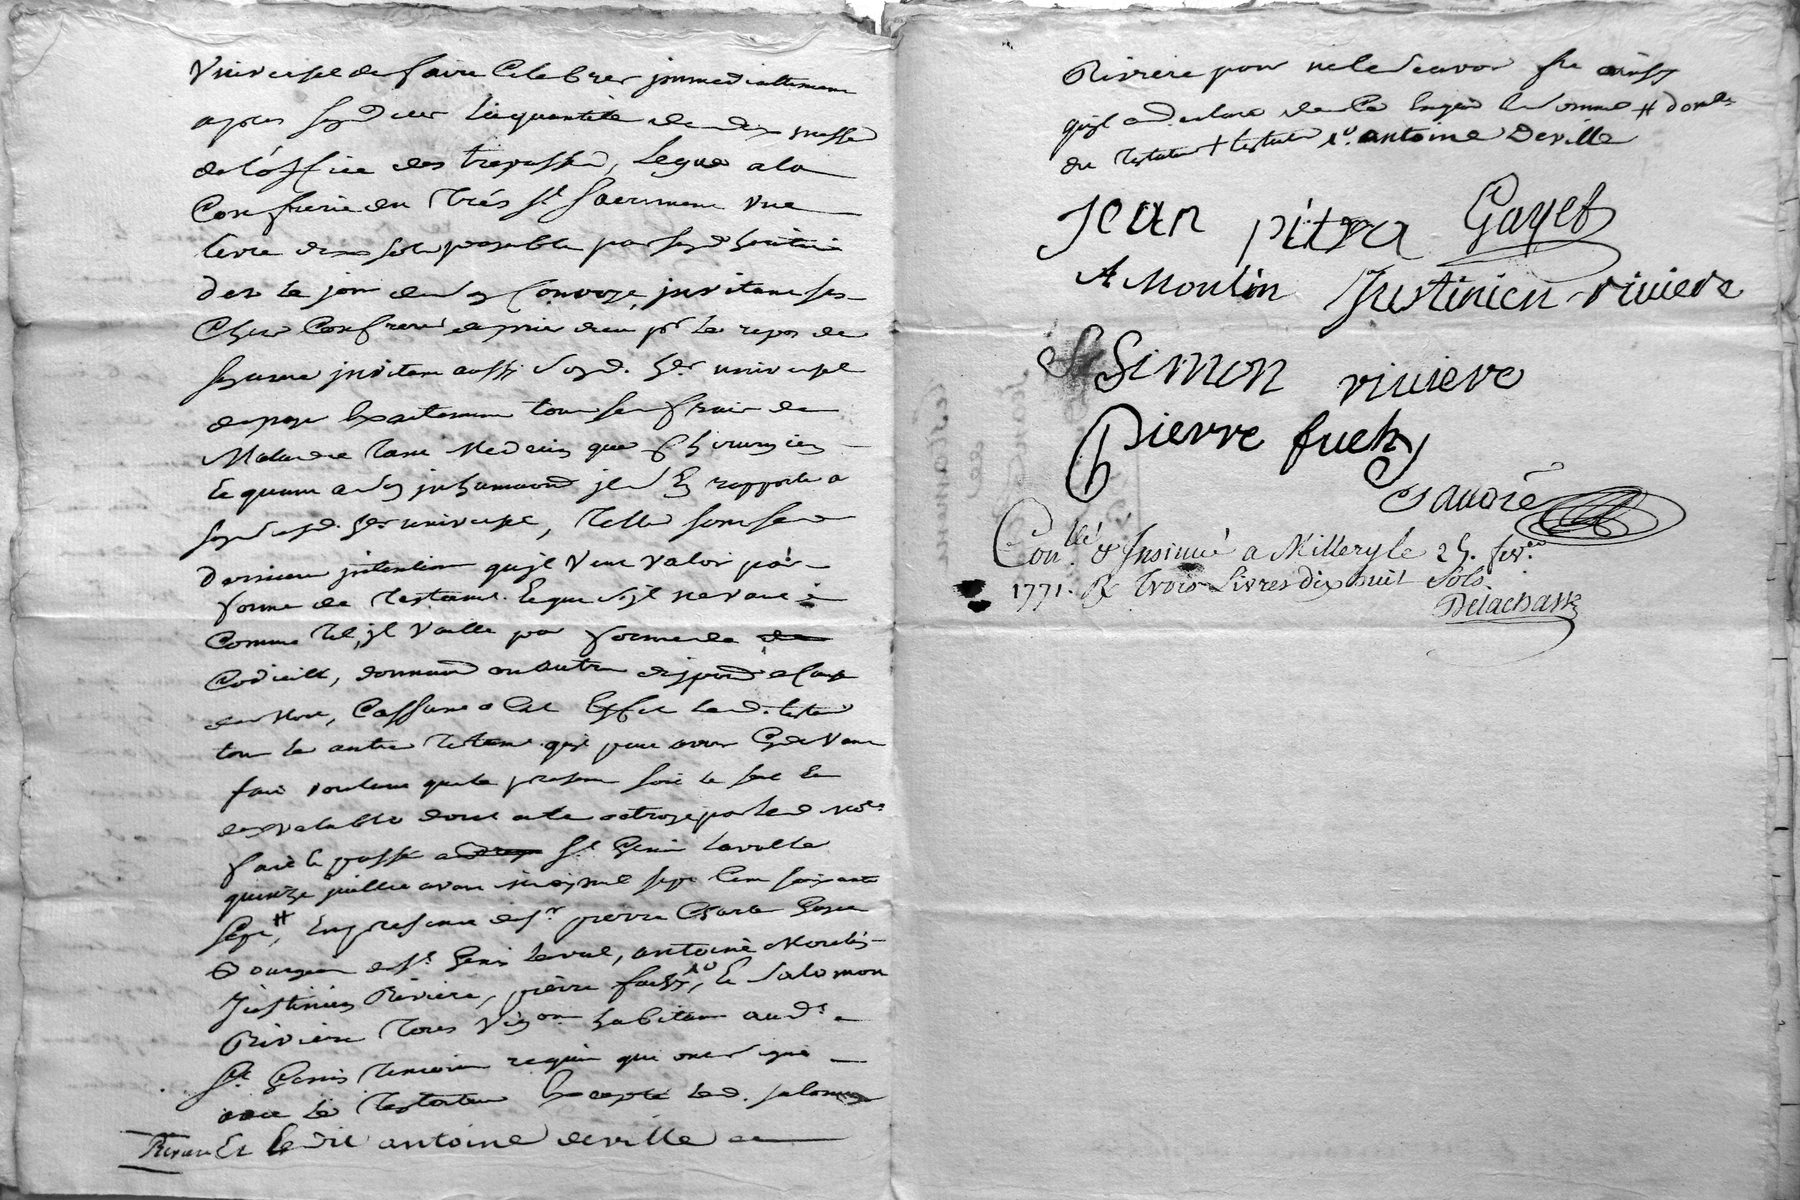 universel de faire Celebrer jmmediattement
apres son deces la quantité de dix messes
de l'office des trepassés, Legue a la
Confrerie du Trés St Sacrement une
livre dix sols payable par sond heritier
des le jour de son Convoye, jnvitant ses
Chers Confreres de prier dieu pr le repos de
son ame jnvitant aussi sond. her universel
de payer Exactement tous ses frais de
Maladie tant Medecin que Chirurgien
Et quant a son jnhumaon jl s'En rapporte a
sond. her universel, Telle sont ses
dernieres jntentions qu'jl veut valoir par
forme de Testament. Et que s'jl ne vaut
Comme Tel, jl vaille par forme de
Codicille, donnaon ou autre dispoon a Cause
de Mort, Cassant a Cet Effet led. testateur
tous les autres Testamt qu'jl peut avoir Cy devant
fait voulant que le present soit le seul En
valable dont acte octroyé par led. Nore
fait & passé a St Genis Lavalle
quinze juillet avant midy mil sept Cent soixante
sept #, En presence de sr pierre Charle Gayet
Bourgeois de St Genis Laval, antoine Moulin
Justinien Riviere, pierre, Et Salomon
Riviere tous habitant aud.
St Genis temoins requis qui ont signé
avec le Testateur Excepté led. Salomon
Et Ledit antoine deville
Riviere pour ne le scavoir fre ainsy
qu'jl a declaré de Ce Enquis & sommé # dont
du Testateur + testateur antoine Deville
Jean pitra Gayet
A Moulin Justinien riviere
Simon riviere
Pierre
Con.llé & Insinué a Millery le 25. fevr.
1771. R Trois Livres dix huit Sols
Delachass